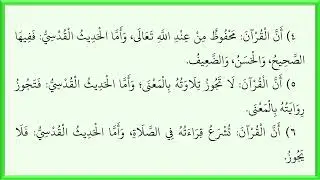 ٤) أَنَّ الْقُرْآنَ: مَحْفُوظٌ مِنْ عِنْدِ اللَّهِ تَعَالَى، وَأَمَّا الْحَدِيثُ الْقُدْسِيُّ: فَفِيهَا
الصَّحِيحُ، وَالْحَسَنُ، وَالضَّعِيفُ.
٥) أَنَّ الْقُرْآنَ: لَا تَجُوزُ تِلَاوَتُهُ بِالْمَعْنَى؛ وَأَمَّا الْحَدِيثُ الْقُدْسِيُّ: فَتَجُوزُ
رِوَايَتُهُ بِالْمَعْنَى.
٦) أَنَّ الْقُرْآنَ: تُشْرَعُ قِرَاءَتُهُ فِي الصَّلَاةِ، وَأَمَّا الْحَدِيثُ الْقُدْسِيُّ: فَلَا
يَجُوزُ.